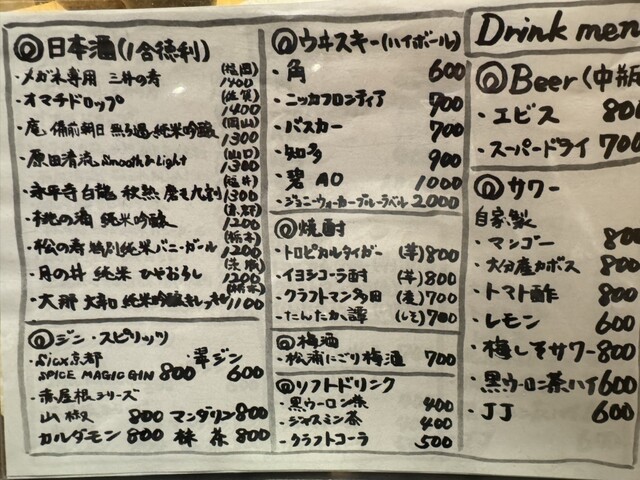 ◎日本酒(1合徳利)
・メガネ専用 三井の寿 (福岡) 1400
・オマチドロップ (佐賀) 1400
・庵 備前朝日 無ろ過 純米吟醸 (岡山) 1300
・原田清流 Smooth & Light (山口) 1300
・永平寺白龍 秋熟 磨も九割 (福井) 1300
・桃の滴 純米吟醸 (京都) 1200
・松の寿 特別純米 バニーガール (栃木) 1200
・月の井 純米 ひやおろし (茨城) 1200
・大那 大和 純米吟醸 (栃木) 1100
◎ジン・スピリッツ
・京都
SPICE MAGIC GIN 800
・翠ジン 600
・蒲屋根シリーズ
山椒 800 マンダリン 800
カルダモン 800 抹茶 800
◎ウヰスキー(ハイボール)
・角 600
・ニッカフロンティア 900
・バスカー 700
・知多 900
・碧 AO 1000
・ジョニーウォーカーブルーラベル 2000
◎焼酎
・トロピカルタイガー (芋) 800
・イヨシコーラ酎 (芋) 800
・クラフトマン多田 (麦) 700
・たんたかた譚 (しそ) 700
◎梅酒
・松浦にごり梅酒 700
◎ソフトドリンク
・黒ウーロン茶 400
・ジャスミン茶 400
・クラフトコーラ 500
Drink men
◎Beer(中瓶
・エビス 800
・スーパードライ 700
◎サワー
自家製
・マンゴー 800
・大分産カボス 800
・トマト酢 800
・レモン 600
・梅しそサワー 800
・黒ウーロン茶ハイ 600
・JJ 600